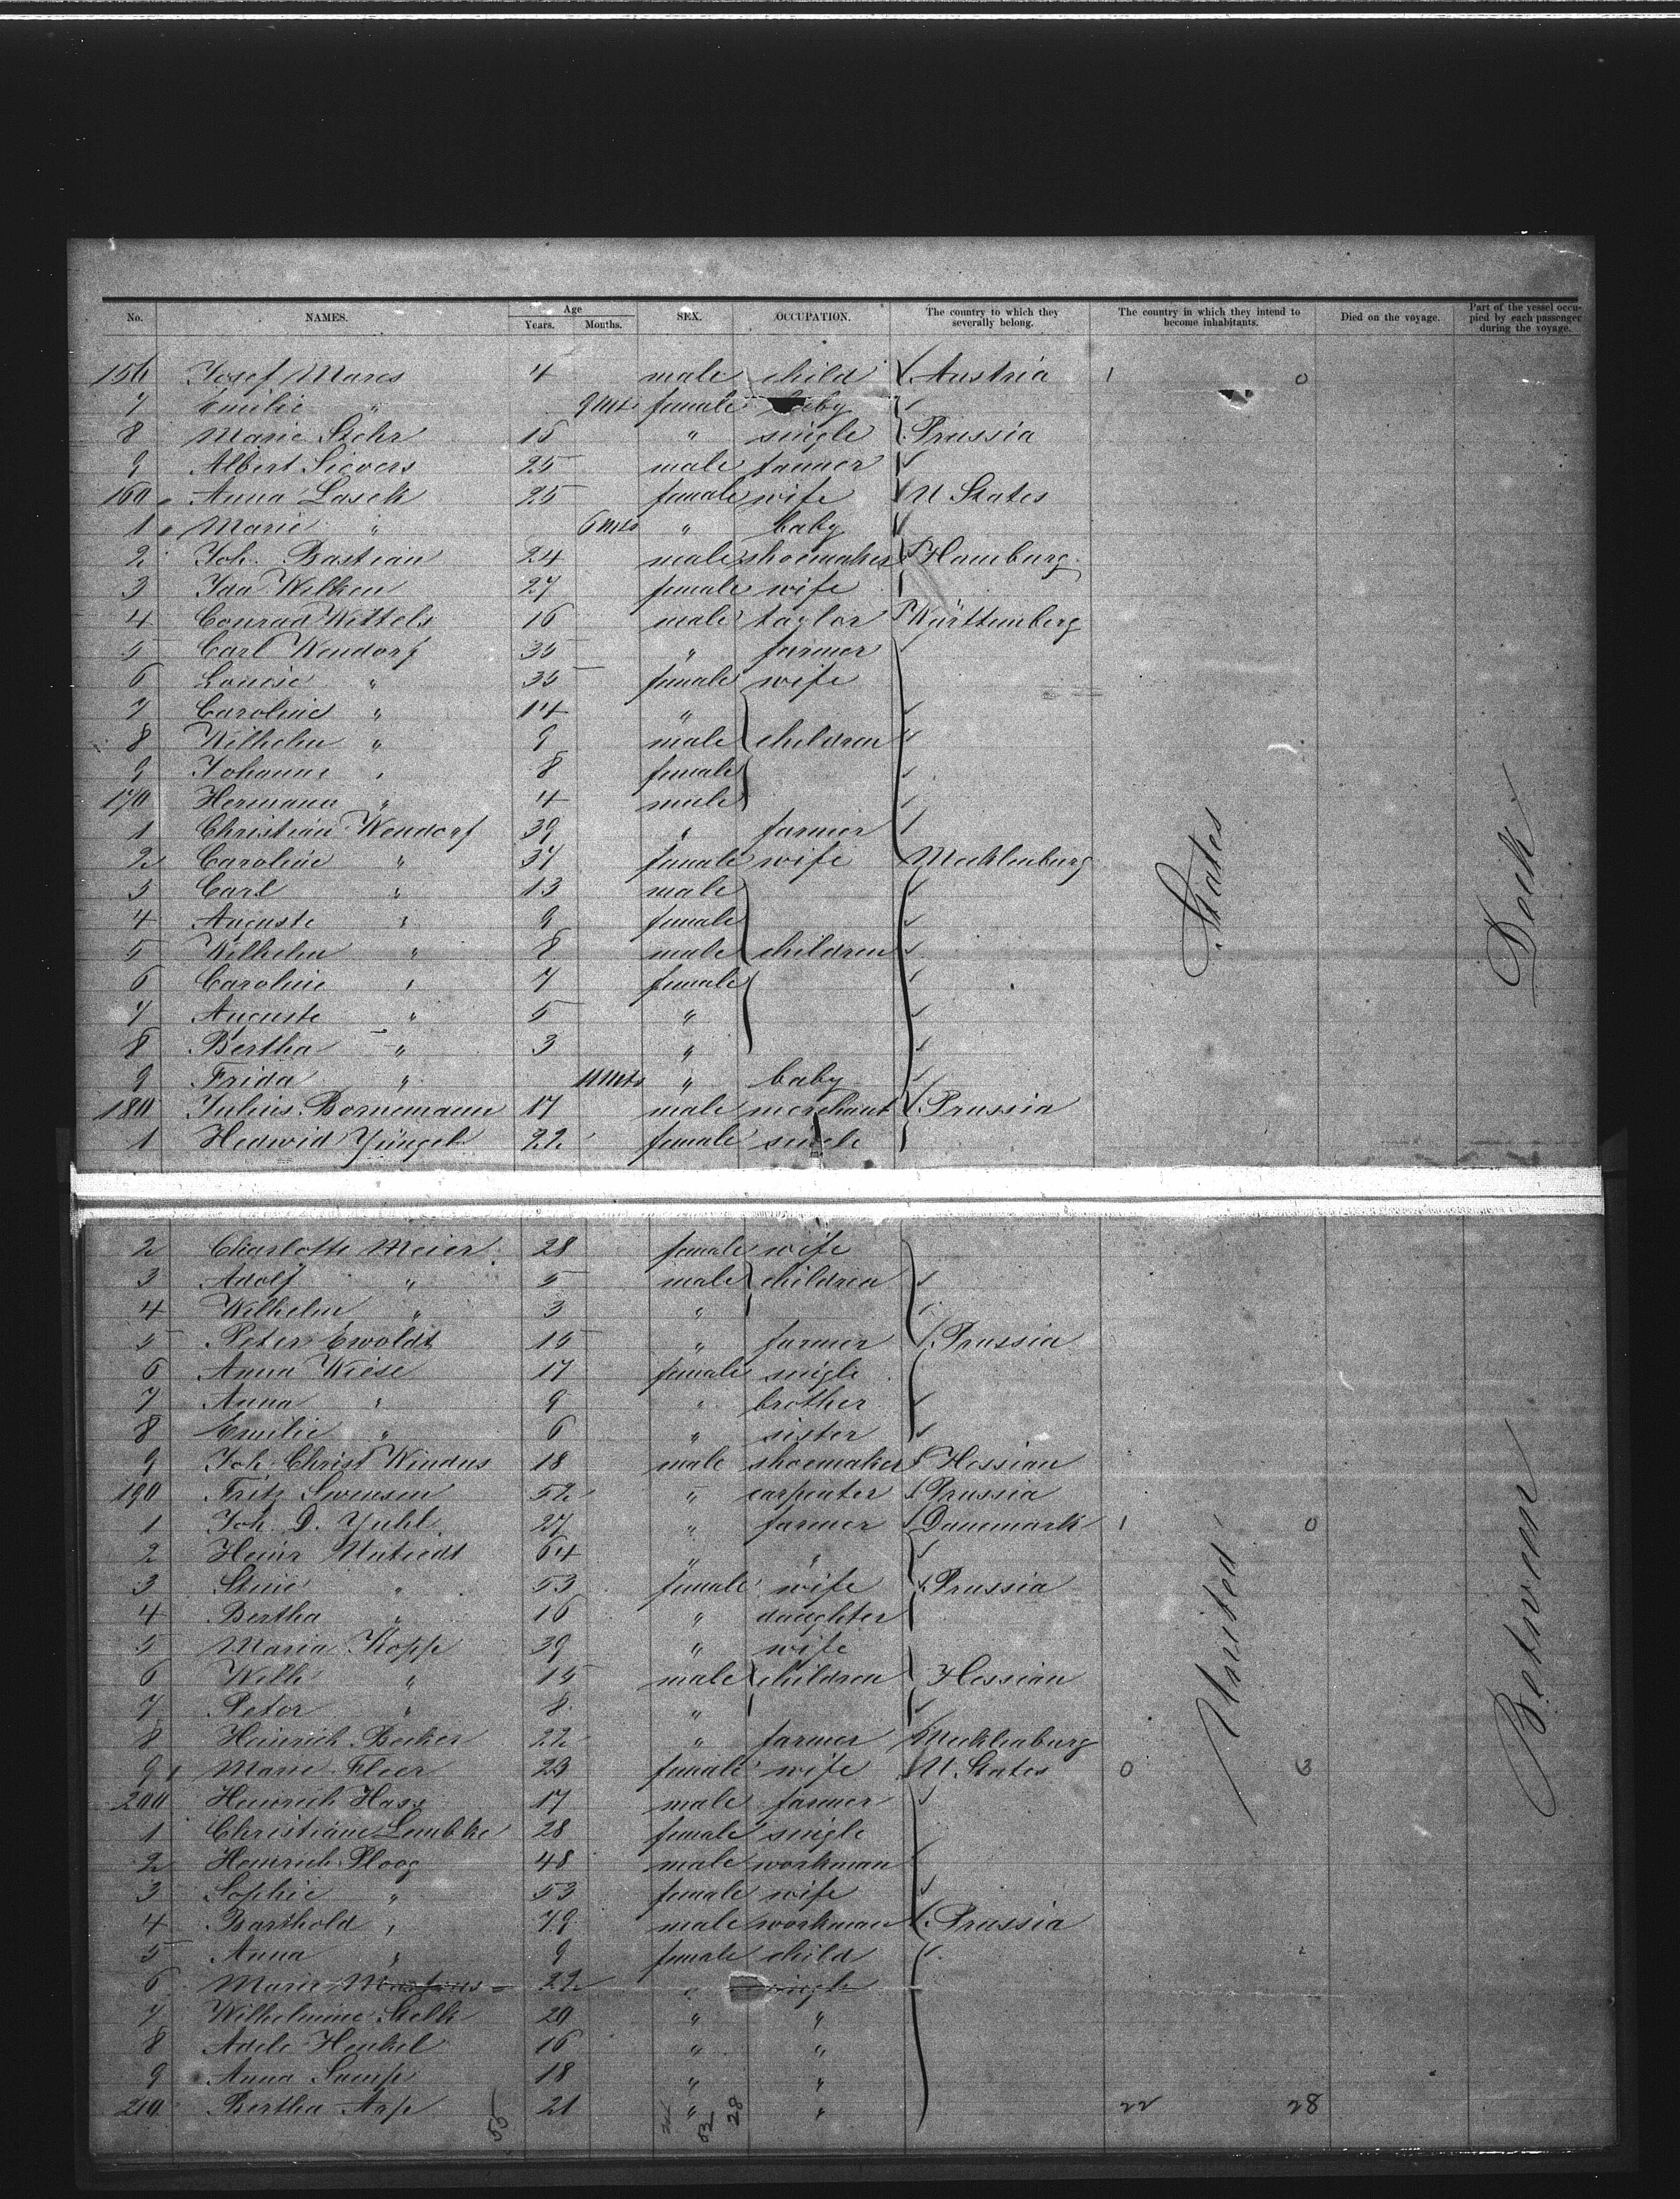 No. NAMES. Age Years. Months. SEX. OCCUPATION. The country to which they severally belong. The country in which they intend to become inhabitants. Died on the voyage. Part of the vessel occupied by each passenger during the voyage.
156 Josef Mares 4 male child Austria 1 0
7 Emilie " 9 Mts female baby
8 Marie Stehr 16 " single Prussia
9 Albert Sievers 25 male farmer
160 Anna Lasek 25 female wife U States
1 Marie " 6 Mts " baby
2 Joh. Bastian 24 male shoemaker Hamburg
3 Ida Wilken 27 female wife
4 Conrad Wittels 16 male taylor Württemberg
5 Carl Wendorf 35 " farmer
6 Louise " 35 female wife
7 Caroline " 14 "
8 Wilhelm " 9 male children
9 Johanne " 8 female
170 Hermann " 4 male
1 Christian Wendorf 39 " farmer
2 Caroline " 37 female wife Mecklenburg
3 Carl " 13 male
4 Auguste " 9 female
5 Wilhelm " 8 male children
6 Caroline " 7 female
7 Auguste " 5 "
8 Bertha " 3 "
9 Frida " 11 Mts " baby
180 Julius Bornemann 17 male merchant Prussia
1 Hedwid Jüngel 22 female single
States
Deck
2 Charlotte Meier 28 female wife
3 Adolf " 5 male children
4 Wilhelm " 3 "
5 Peter Ewoldt 15 " farmer Prussia
6 Anna Wiese 17 female single
7 Anna " 9 " brother
8 Emilie " 6 " sister
9 Joh. Christ Windus 18 male shoemaker Hessian
190 Fritz Swensen 52 " carpenter Prussia
1 Joh. D. Juhl 27 " farmer Danemark 1 0
2 Heinr 64 " "
3 Stine " 53 female wife Prussia
4 Bertha " 16 " daughter
5 Maria Kopp 39 " wife
6 Wilh " 15 male children Hessian
7 Peter " 8 "
8 Heinrich Becker 22 " farmer Mecklenburg
9 Marie Fleer 23 female wife U. States 0 3
200 Heinrich Hass 17 male farmer
1 Christiane Lembke 28 female single
2 Heinrich Ploog 48 male workman
3 Sophie " 53 female wife
4 Barthold " 79 male workman Prussia
5 Anna " 9 female child
6 Marie Martens 22 " single
7 Wilhelmine Stelk 20 " "
8 Adele Henkel 16 " "
9 Anna Samp 18 " "
210 Bertha Arp 21 " " 22 28
United
Between
55 52 28